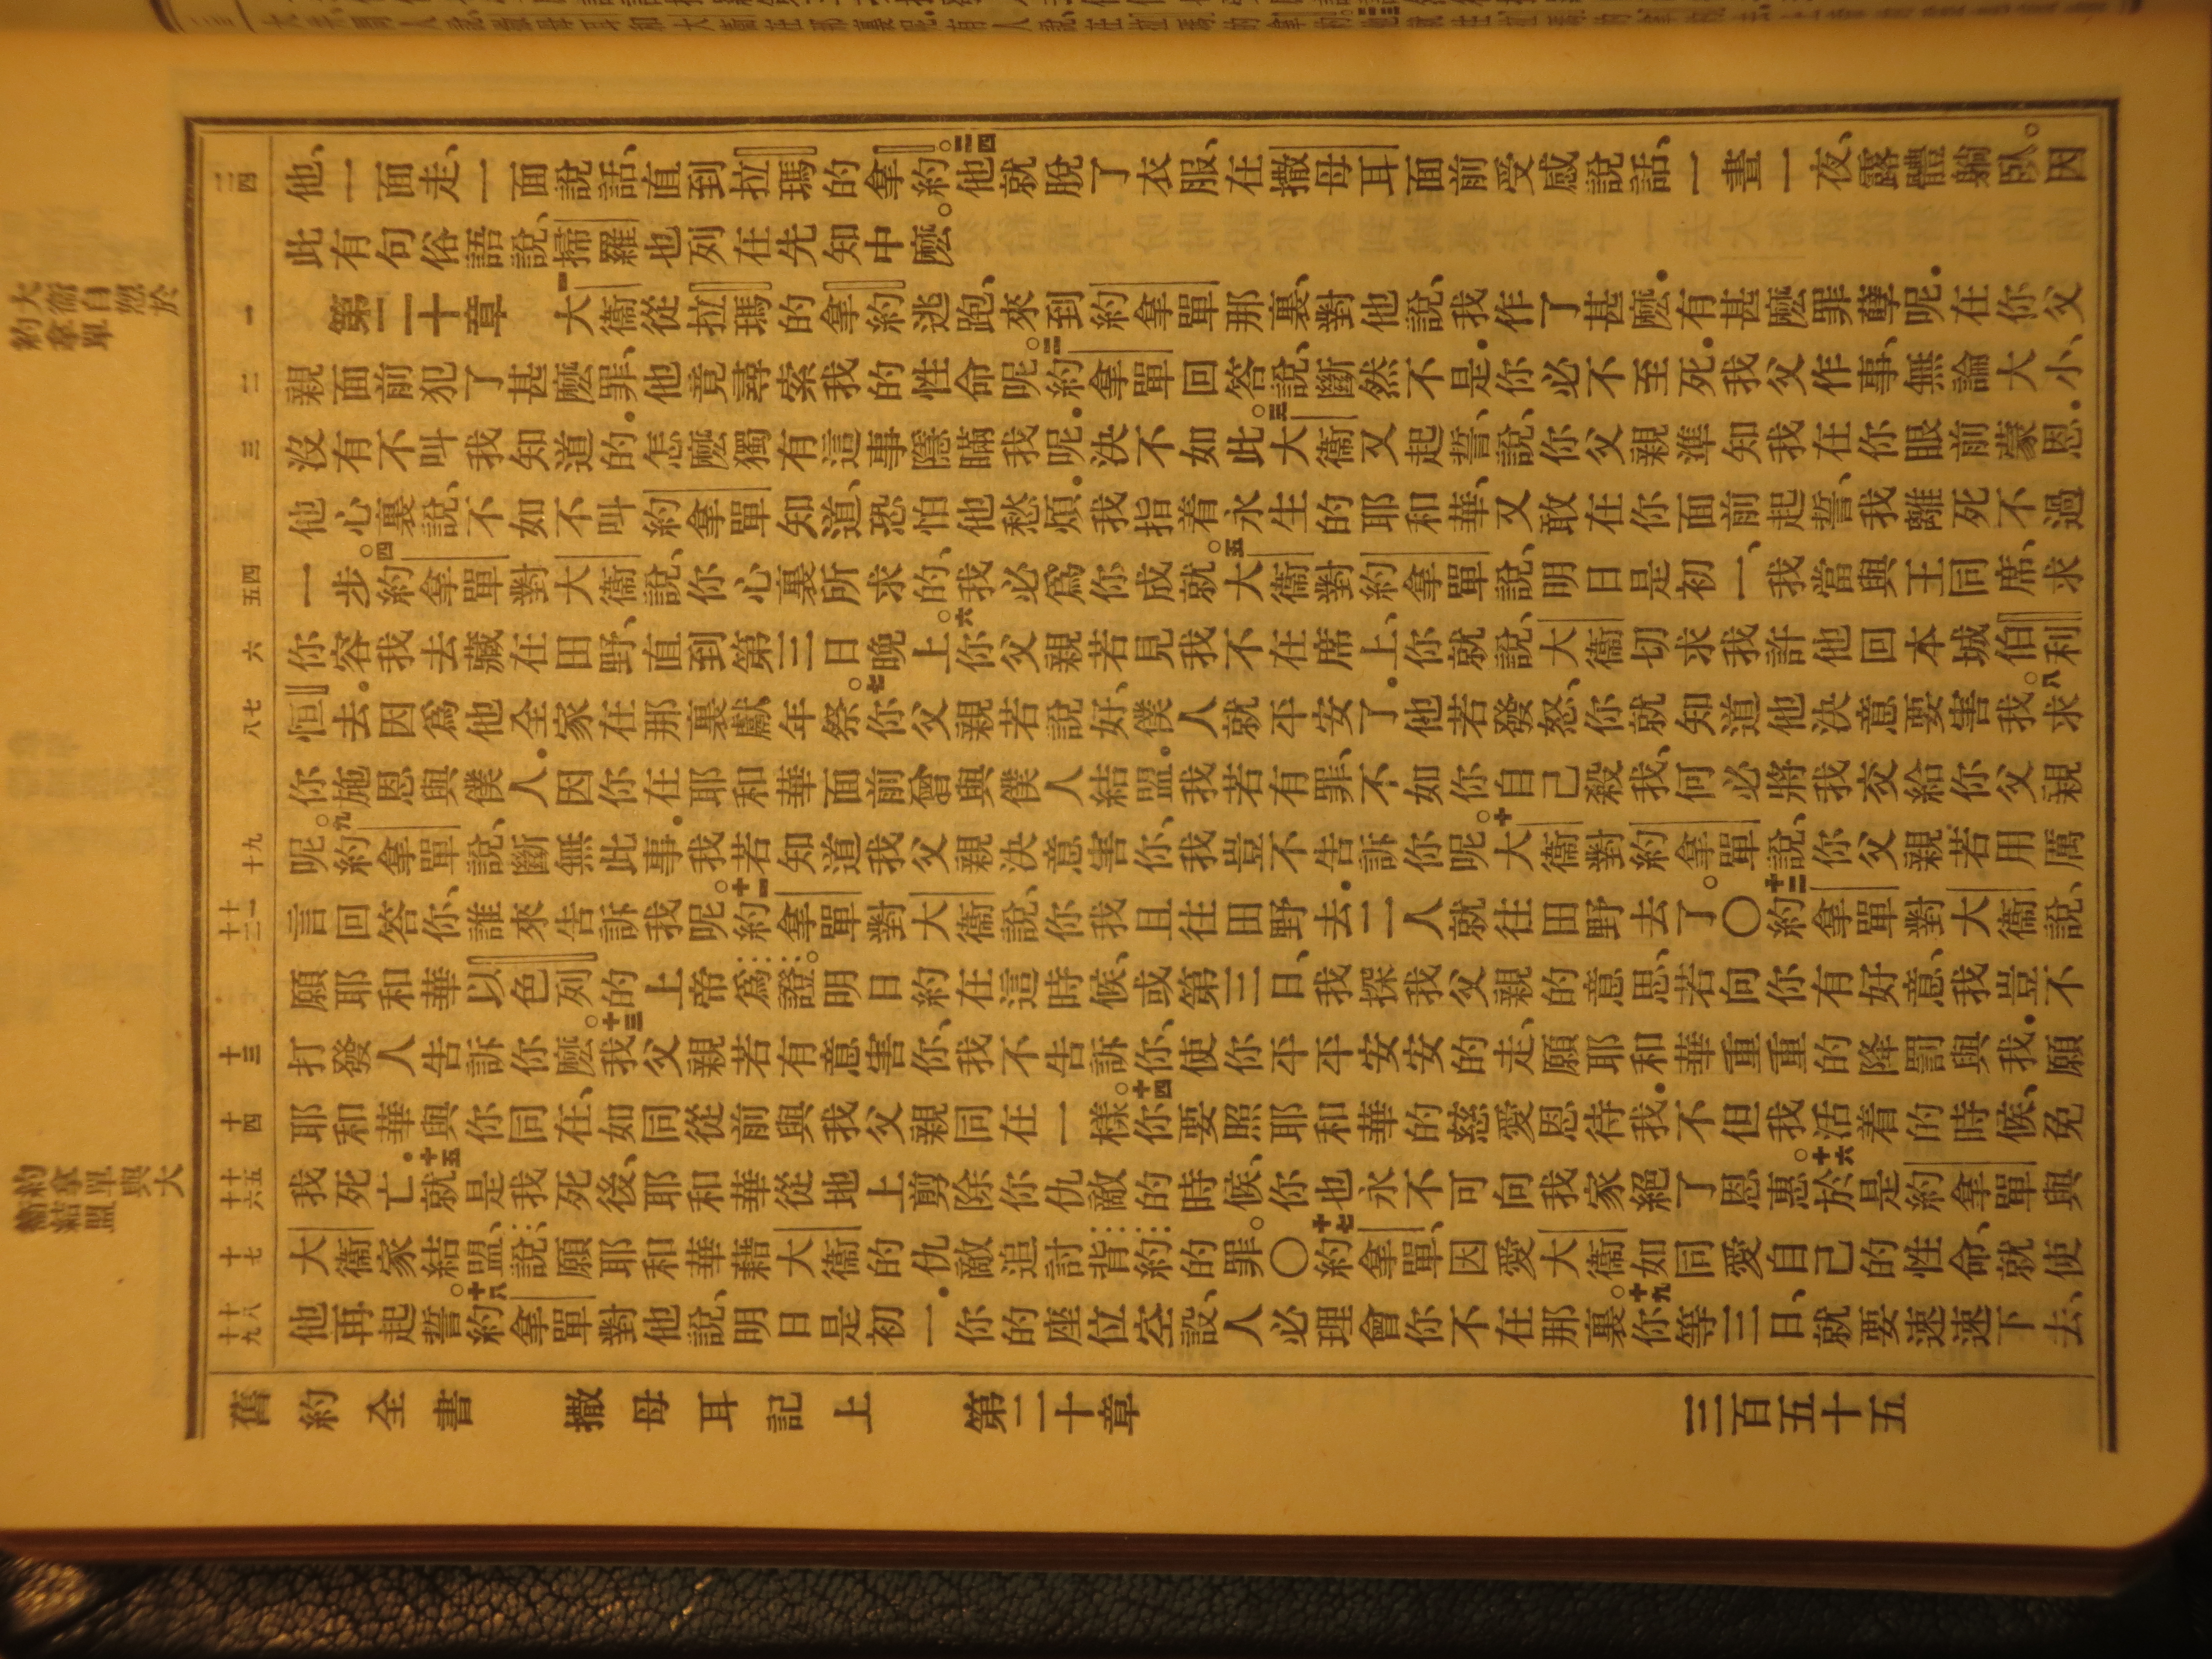 舊約全書 撒母耳記上 第二十章 三百五十五
他、一面走、一面說話、直到拉瑪的拿約。二四他就脫了衣服、在撒母耳面前受感說話、一晝一夜、露體躺臥。因
此有句俗語說、掃羅也列在先知中麼。
第二十章 一大衞從拉瑪的拿約逃跑、來到約拿單那裏、對他說、我作了甚麼．有甚麼罪孽呢．在你父
親面前犯了甚麼罪、他竟尋索我的性命呢。二約拿單回答說、斷然不是．你必不至死．我父作事、無論大小、
沒有不叫我知道的．怎麼獨有這事隱瞞我呢．決不如此。三大衞又起誓、說、你父親準知我在你眼前蒙恩．
他心裏說、不如不叫約拿單知道、恐怕他愁煩．我指着永生的耶和華、又敢在你面前起誓、我離死不過
一步。四約拿單對大衞說、你心裏所求的、我必爲你成就。五大衞對約拿單說、明日是初一、我當與王同席、求
你容我去藏在田野、直到第三日晚上。六你父親若見我不在席上、你就說、大衞切求我許他回本城伯利
恒去．因爲他全家在那裏獻年祭。七你父親若說好、僕人就平安了．他若發怒、你就知道他決意要害我。八求
你施恩與僕人．因你在耶和華面前曾與僕人結盟．我若有罪、不如你自己殺我、何必將我交給你父親
呢。九約拿單說、斷無此事．我若知道我父親決意害你、我豈不告訴你呢。十大衞對約拿單說、你父親若用厲
言回答你、誰來告訴我呢。十一約拿單對大衞說、你我且往田野去．二人就往田野去了。〇十二約拿單對大衞說、
願耶和華以色列的上帝爲證。明日約在這時候、或第三日、我探我父親的意思、若向你有好意、我豈不
打發人告訴你麼。十三我父親若有意害你、我不告訴你、使你平平安安的走、願耶和華重重的降罰與我．願
耶和華與你同在、如同從前與我父親同在一樣。十四你要照耶和華的慈愛恩待我．不但我活着的時候、免
我死亡．十五就是我死後、耶和華從地上剪除你仇敵的時候、你也永不可向我家絕了恩惠。十六於是約拿單與
大衞家結盟、說、願耶和華藉大衞的仇敵追討背約的罪。〇十七約拿單、因愛大衞如同愛自己的性命、就使
他再起誓。十八約拿單對他說、明日是初一．你的座位空設、人必理會你不在那裏。十九你等三日、就要速速下去、
二四
一
二
三
四五
六
七八
九十
十一十二
十三
十四
十五十六
十七
十八十九
大衞自怨於約拿單
約拿單與大衞結盟